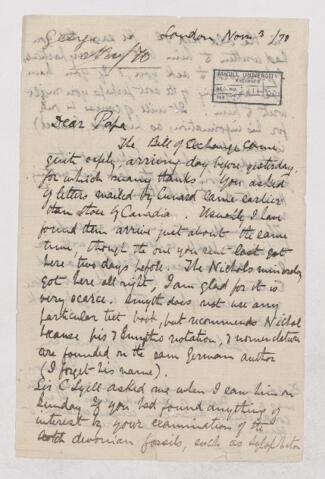 George
Nov/70
London Nov 3/70
McGILL UNIVERSITY
ARCHIVES
Dear Papa
The Bill of Exchange came
quit safely, arriving day before yesterday.
for which many thanks. You asked
if letters mailed by Cunard came earlier
than those by Canadian. Usually I have
found them arrive just about the same
time, though the one you sent last got
here two days before. The Nichols mineralogy
got here all right, I am glad for it is
very scarce. Smyth does not use any
particular text book, but recommends Nichol
because his & Smyths notation, & nomenclature
are founded on the same German author
(I forget his name).
Sir C Lyell asked me when I saw him on
Sunday if you had found anything of
interest by your examination of the
devonian fossils, such as